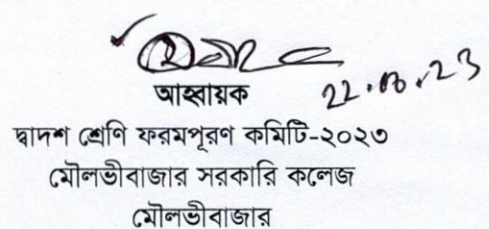 আহ্বায়ক
দ্বাদশ শ্রেণি ফরমপূরণ কমিটি-২০২৩
মৌলভীবাজার সরকারি কলেজ
মৌলভীবাজার